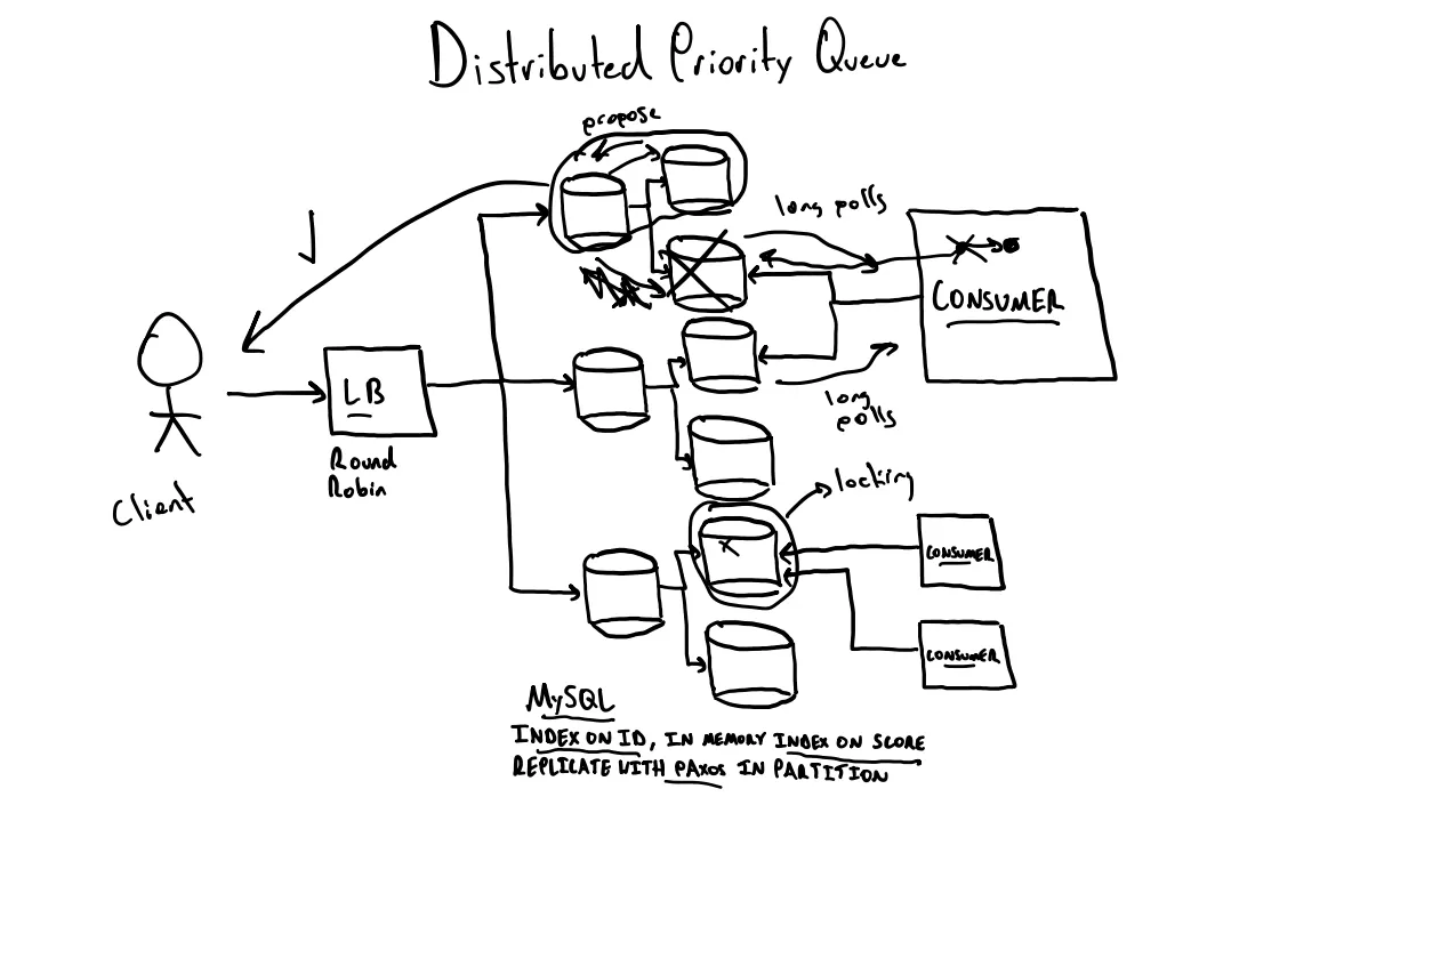 Distributed Priority Queue
propose
long polls
CONSUMER
LB
Round
Robin
Client
long
polls
locking
CONSUMER
CONSUMER
MySQL
INDEX ON ID, IN MEMORY INDEX ON SCORE
REPLICATE WITH PAXOS IN PARTITION